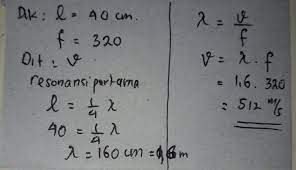 Dik : l = 40 cm.
f = 320
Dit : v
resonansi pertama
l = 1/4 λ
40 = 1/4 λ
λ = 160 cm = 1,6 m
λ = v/f
v = λ . f
= 1,6 . 320
= 512 m/s